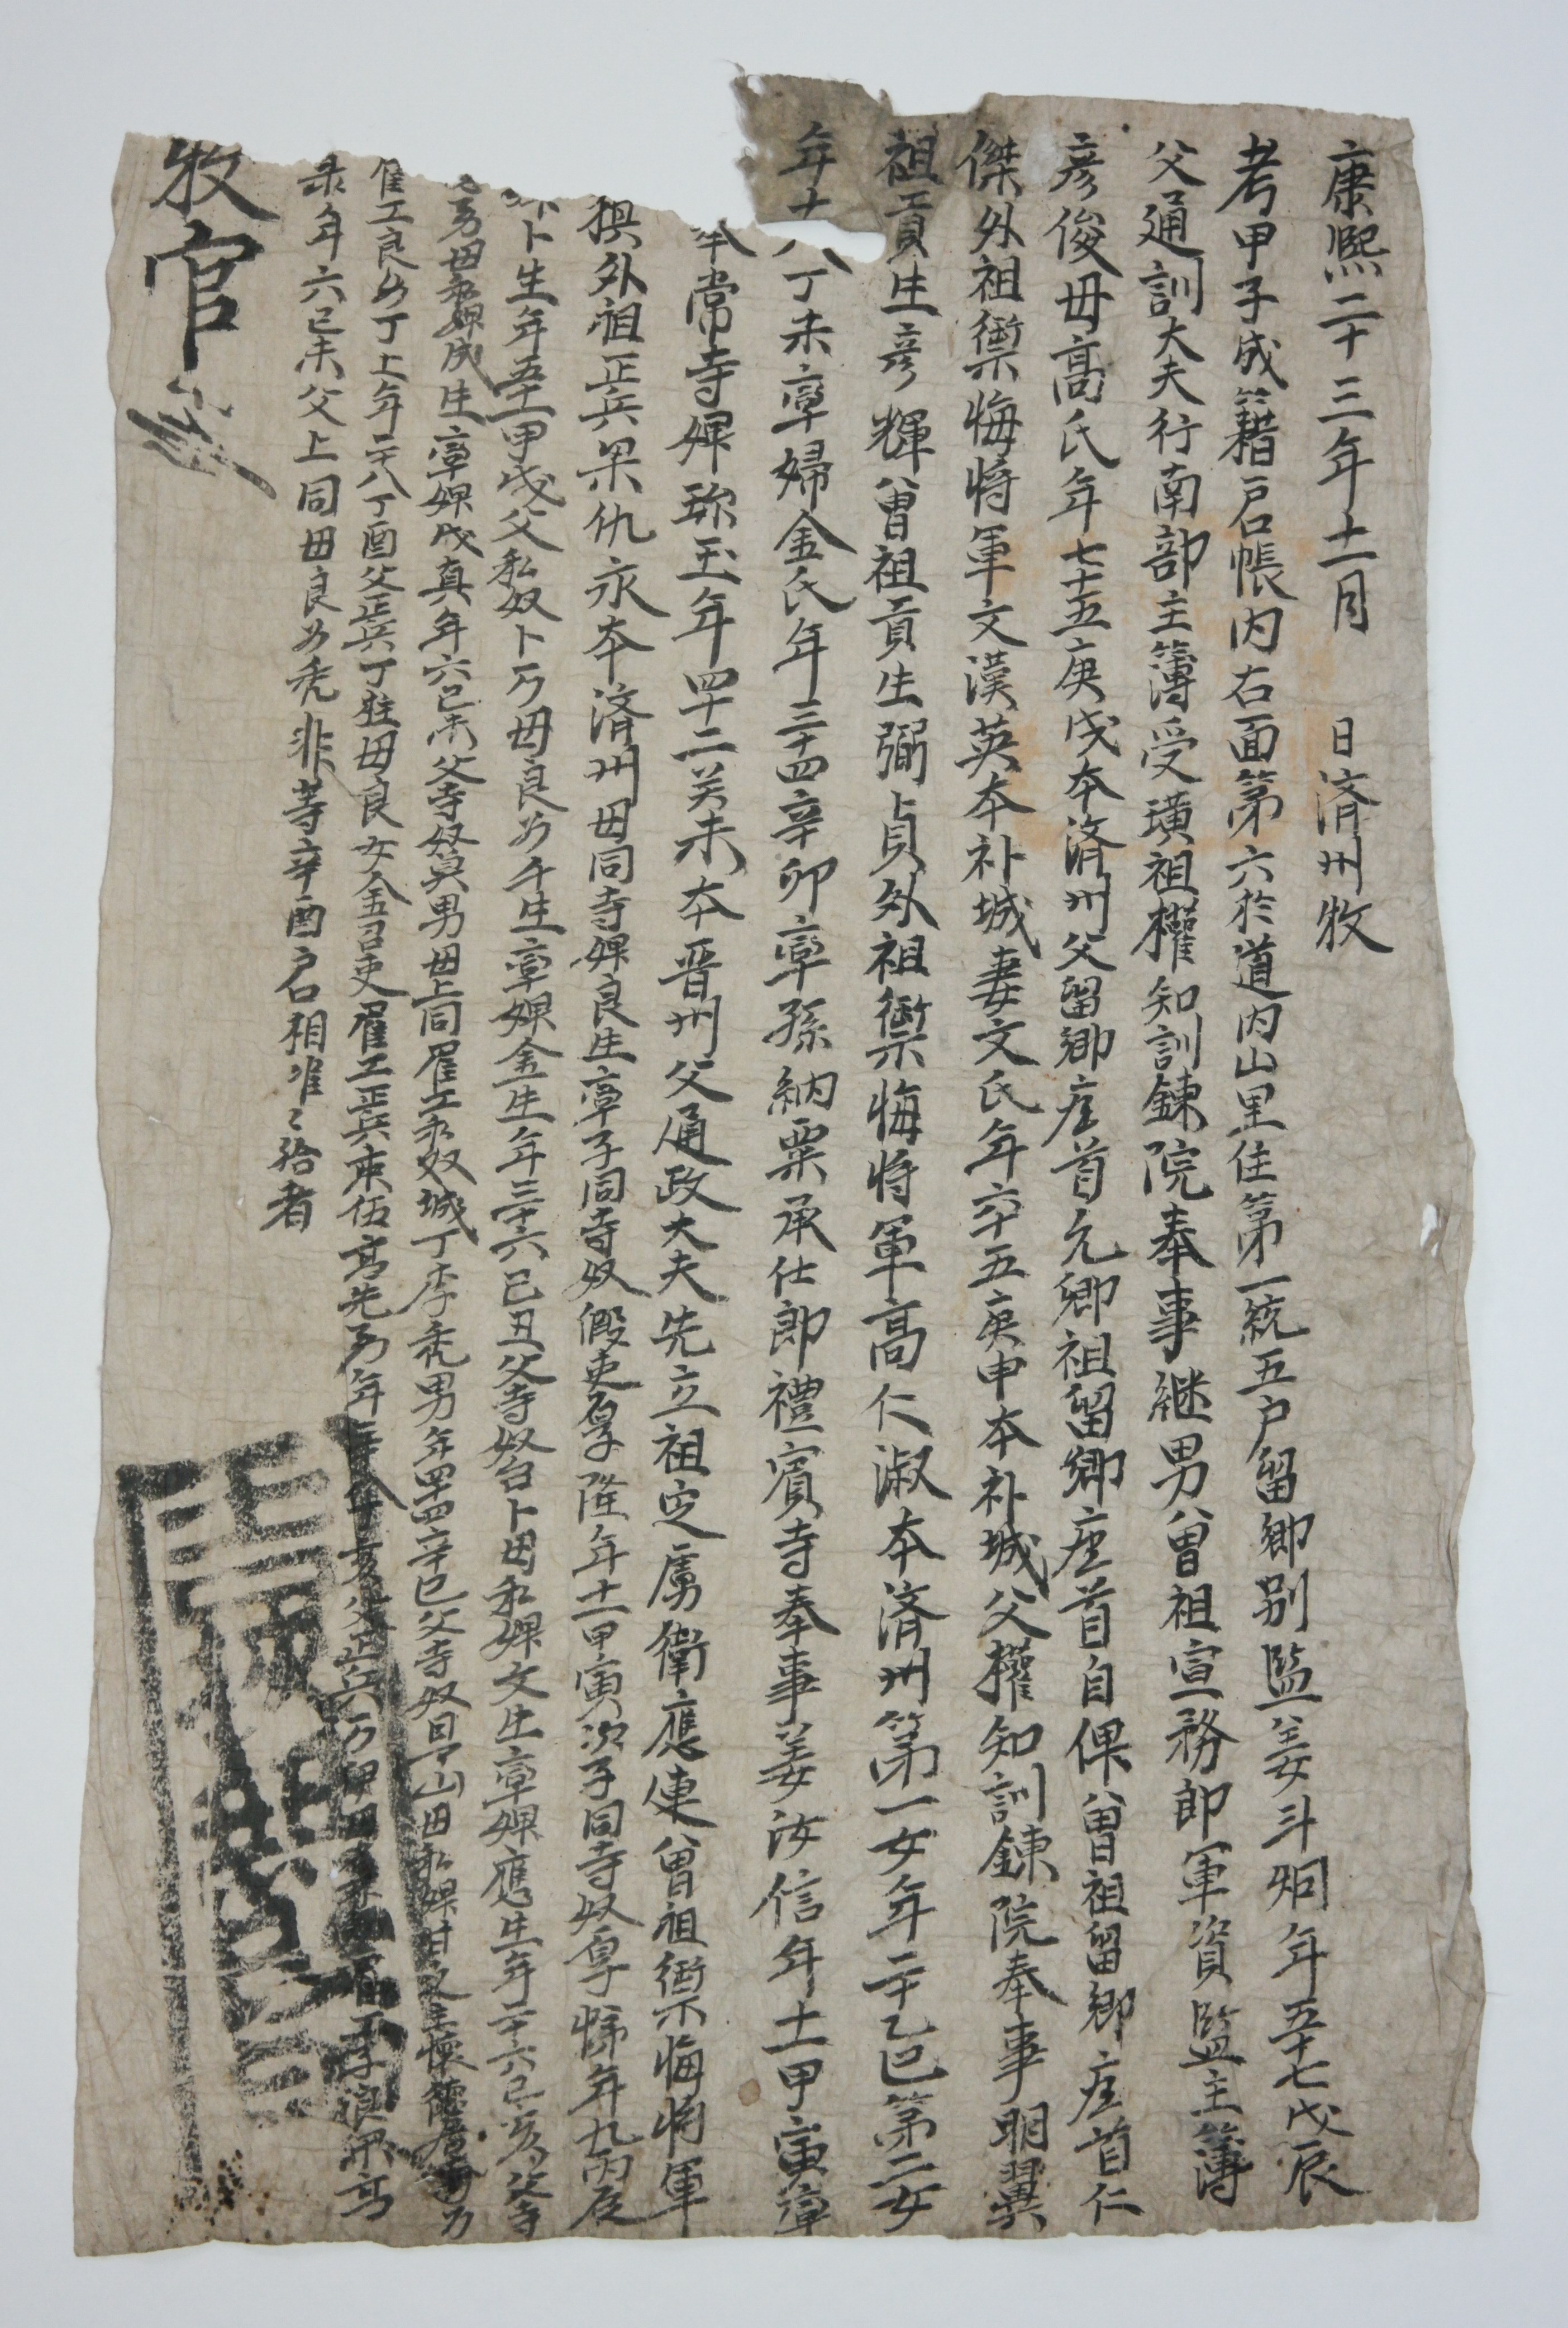 康熙二十三年十二月 日濟州牧
考甲子成籍戶口帳內右面第六於道內山里住第一統五戶留鄕別監姜斗烱年五十七戊辰
父通訓大夫行南部主簿受璜祖權知訓鍊院奉事繼男曾祖宣務郎軍資監主簿
彦俊母高氏年七十五庚戌本濟州父留鄕座首允卿祖留鄕座首自倮曾祖留鄕座首仁
傑外祖禦侮將軍文漢英本补城妻文氏年六十五庚申本补城父權知訓鍊院奉事明翼
祖貢生彦輝曾祖貢生弼貞外祖禦侮將軍高仁淑本濟州第一女年二十乙巳第二女
年十八丁未率婦金氏年三十四辛卯率孫納粟承仕郎禮賓寺奉事姜汝信年十一甲寅率
奉常寺婢珎玉年四十二癸未本晋州父通政大夫先立祖定虜衛應連曾祖禦侮將軍
外祖正兵果仇永本濟州母同寺婢良生率子同寺奴假吏厚隆年十一甲寅次子同寺奴厚悌年九丙辰
卜生年五十一甲戌父私奴卜万母良女千生率婢金生年三十六己丑父寺奴召卜母私婢文生率婢應生年二十六己亥父寺
男母私婢戌生率婢戌真年六己未父寺奴莫男母上同雇工私奴城丁李禿男年四十四辛巳父寺奴目了山母私婢甘之主懷德
雇工良女丁上年二十八丁酉父正兵丁莊母良女金召史雇工正兵束伍高先男年
彔年六己未父上同母良女禿非等辛酉戶口相准々給者
牧官